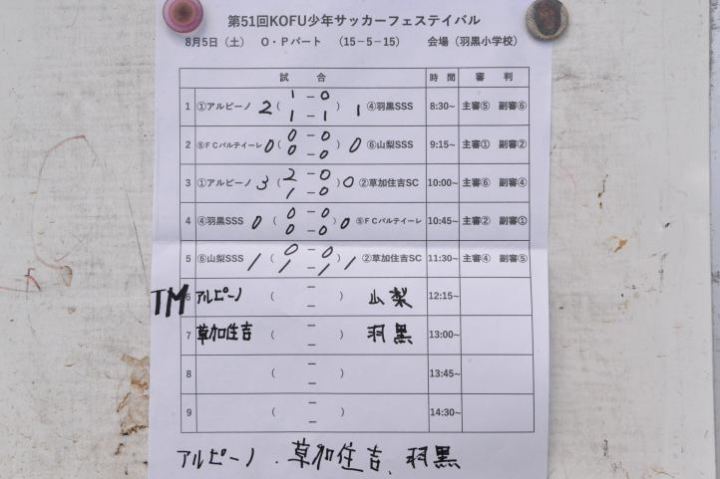 第51回KOFU少年サッカーフェステイバル
8月5日（土） O・Pパート （15－5－15） 会場（羽黒小学校）
試 合 時 間 審 判
1 ①アルピーノ 2 ( 1 － 0 1 － 1 ) 1 ④羽黒SSS 8:30~ 主審⑤ 副審⑥
2 ⑤FCバルテイーレ 0 ( 0 － 0 0 － 0 ) 0 ⑥山梨SSS 9:15~ 主審① 副審②
3 ①アルピーノ 3 ( 2 － 0 1 － 0 ) 0 ②草加住吉SC 10:00~ 主審⑥ 副審④
4 ④羽黒SSS 0 ( 0 － 0 0 － 0 ) 0 ⑤FCバルテイーレ 10:45~ 主審② 副審①
5 ⑥山梨SSS 1 ( 0 － 0 1 － 1 ) 1 ②草加住吉SC 11:30~ 主審④ 副審⑤
TM 6 アルピーノ ( － － ) 山梨 12:15~
7 草加住吉 ( － － ) 羽黒 13:00~
8 ( － － ) 13:45~
9 ( － － ) 14:30~
アルピーノ．草加住吉、羽黒